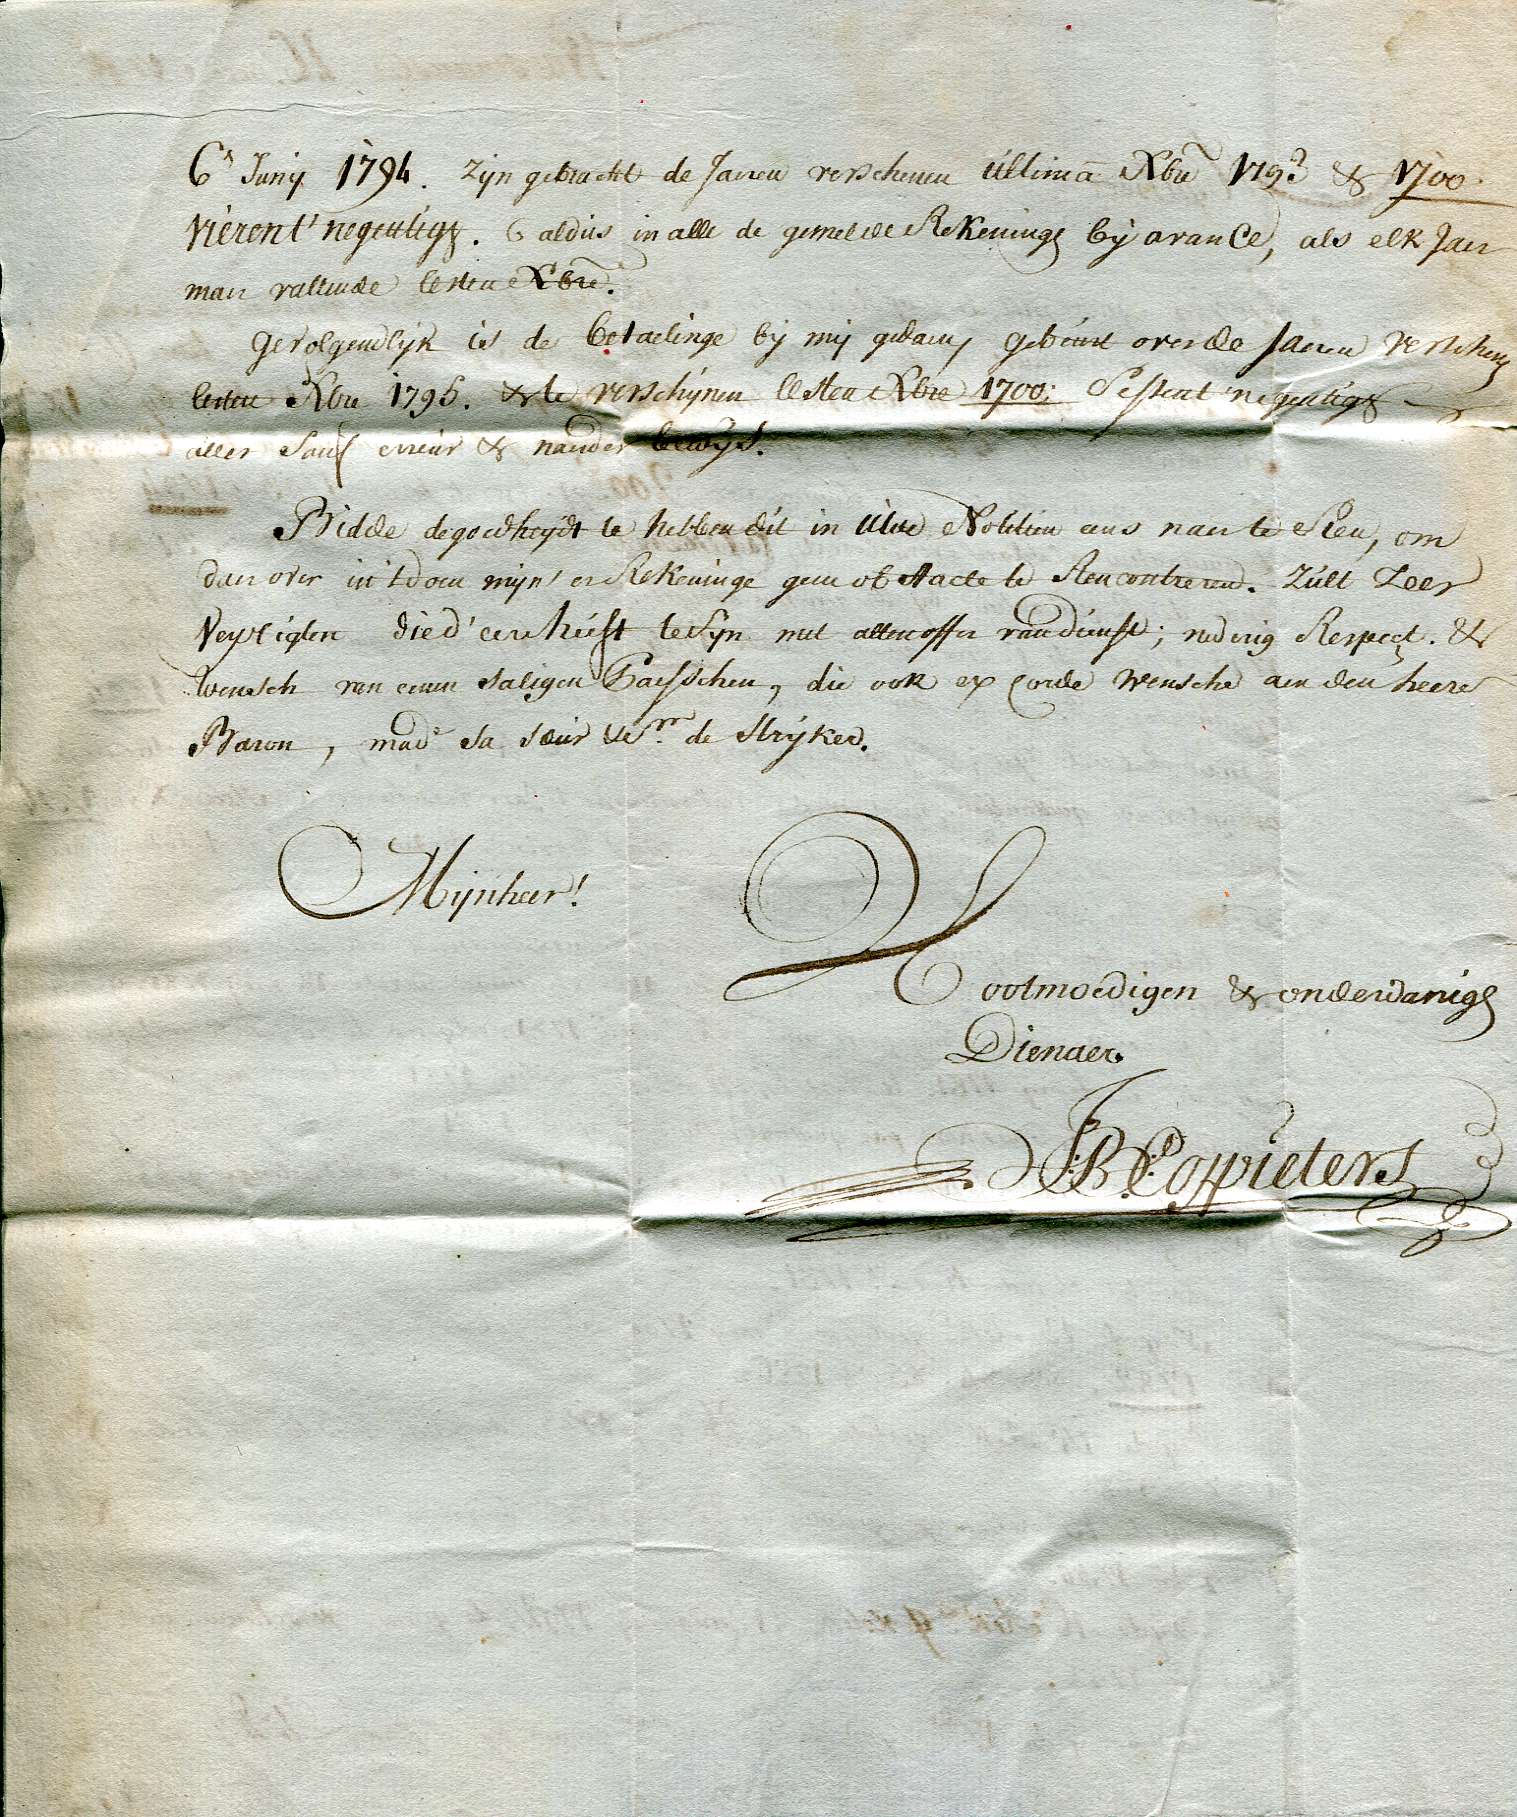 6n Junij 1794. Zijn gebracht de Jaeren verschenen ultima Xbre 1793 & 1700
vierent'negentigh. & aldus in alle de gemelde Rekeninge bij avance, als elk Jaer
maer vallende lesten Xbre.
Gevolgendlijk is de betaelinge bij mij gedaen, gebeurt over de Jaeren verschenen
lesten Xbre 1795. & te verschijnen lesten Xbre 1700: sessent'negentigh
alles sauf erreur & naeder bewijs.
Bidde de goedheijdt te hebben dit in uwe Notitien eens naer te sien, om
daer over in 't doen mijn'er Rekeninge geen obstacle te Rencontreren. Zult zeer
verpligten die d'eere heeft te sijn met allen offer van dienst; nederig Respect. &
wensch van eenen saligen Paesschen, die ook ex corde wensche aen den heere
Baron, made sa soeur & Sr de Strijker.
Mijnheer!
Ootmoedigen & onderdanigh
Dienaer.
J:B:Coppieters